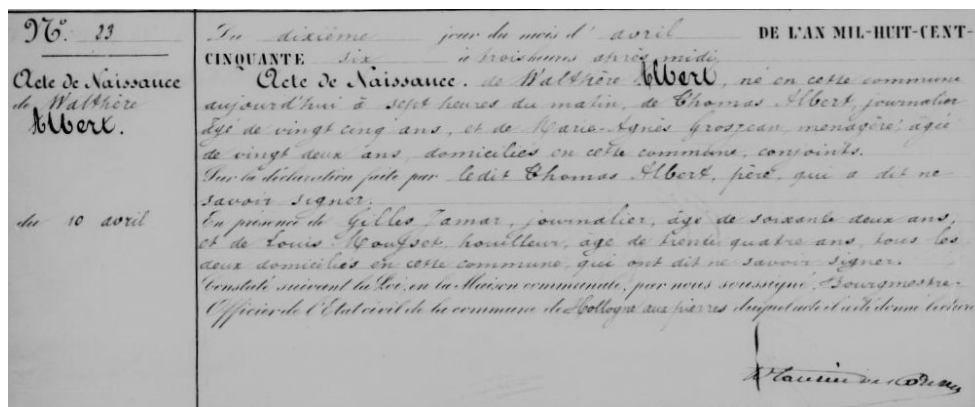 N°. 23
Acte de Naissance
de Walthère
Albert.
du 10 avril
Du dixième jour du mois d'avril DE L'AN MIL-HUIT-CENT-
CINQUANTE six à trois heures après midi,
Acte de Naissance. de Walthère Albert, né en cette commune
aujourd'hui à sept heures du matin, de Thomas Albert, journalier
âgé de vingt cinq ans, et de Marie-Agnès Grosjean, menagère, âgée
de vingt deux ans, domiciliés en cette commune, conjoints.
Sur la déclaration faite par ledit Thomas Albert, père, qui a dit ne
savoir signer.
En présence de Gilles Jamar, journalier, âgé de soixante deux ans,
et de Louis houilleur, âgé de trente quatre ans, tous les
deux domiciliés en cette commune, qui ont dit ne savoir signer.
Constaté suivant la Loi, en la Maison communale, par nous soussigné, Bourgmestre-
Officier de l'Etat civil de la commune de Hollogne aux pierres duquel acte il a été donné lecture